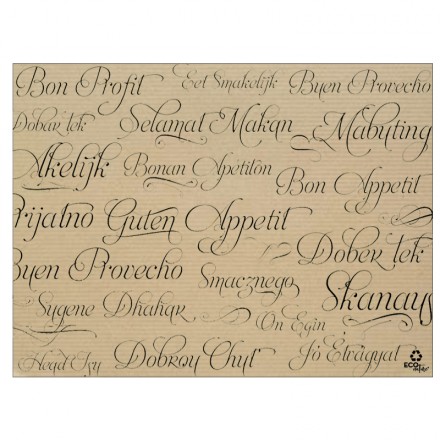 Bon Profit Eet Smakelijk Buen Provecho
Dobar tek Selamat Makan Mabuting
Akelijk Bonan Apetiton Bon Appetit
Prijatno Guten Appetit Dober tek
Buen Provecho Smacznego Skanaus
Sygene Dhahar On Egin
Dobrou Chuť Jó Étvágyat
ECO